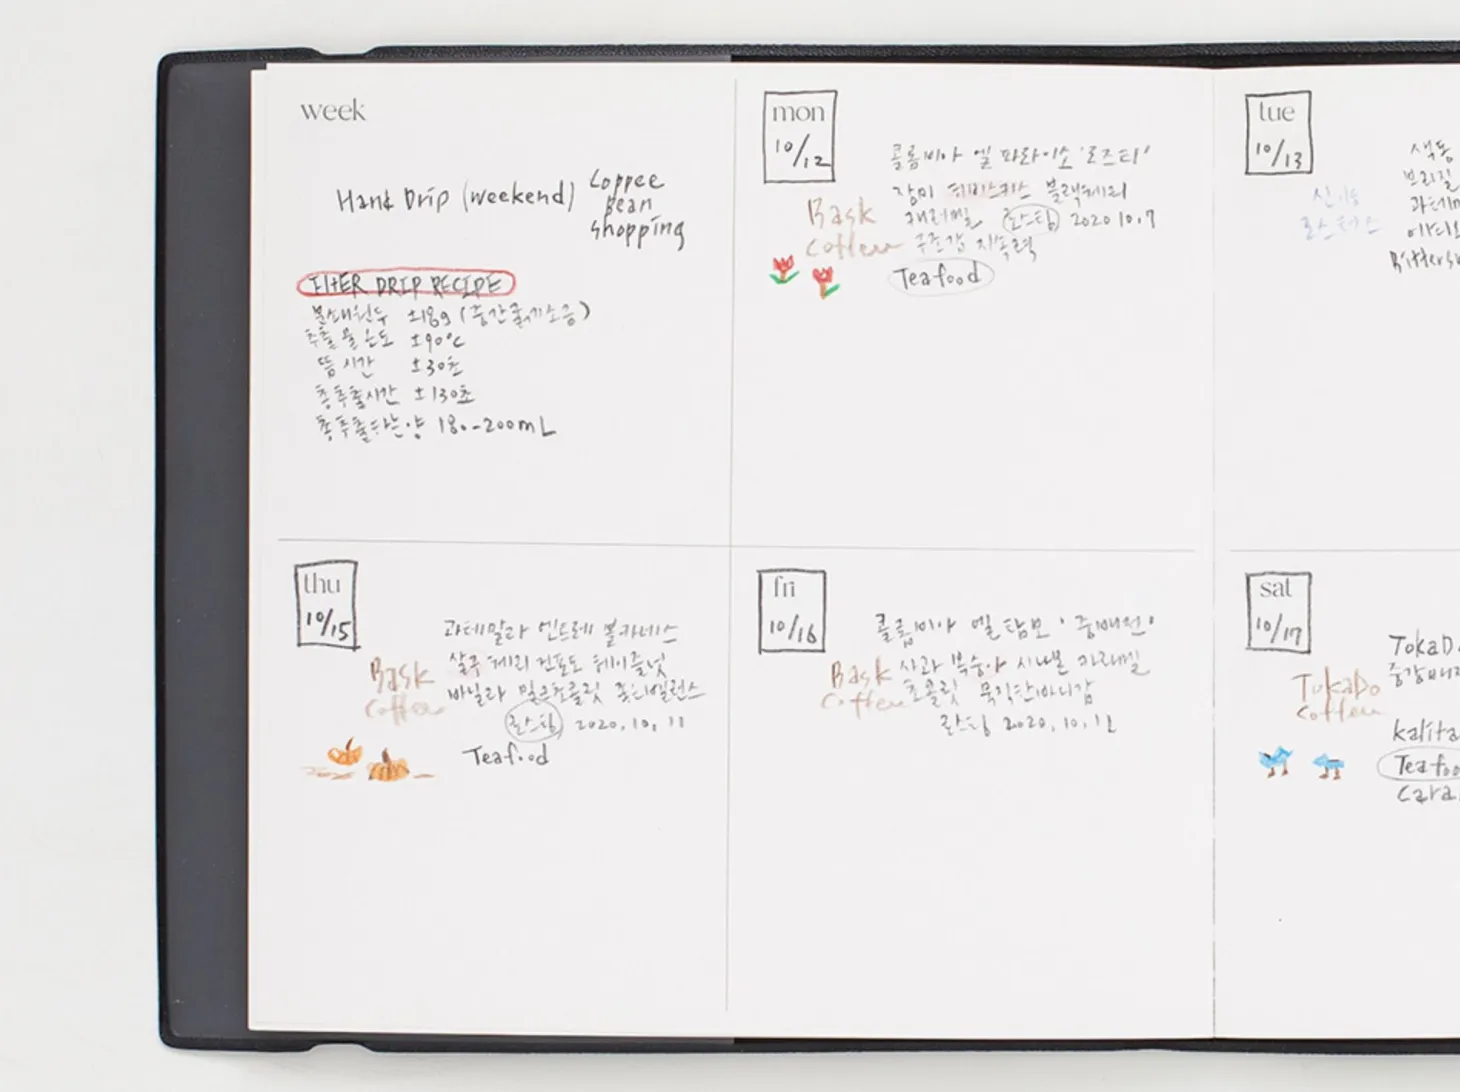 week
Hand Drip (weekend)
Coppee
Bean
shopping
FIlTER DRIP RECIPE
분쇄원두 ±18g (중간굵기소금)
추출물온도 ±90°C
뜸시간 ±30초
총추출시간 ±130초
총추출하는양 180-200mL
mon
10/12
콜롬비아 엘 파라이소 '로즈티'
장미 히비스커스 블랙베리
Bask
Coffee
캐러멜 로스팅 2020 10.7
구조감 지속력
Teafood
tue
10/13
신기동
로스터스
색동
브리질
과테
에티오
Bitters
thu
10/15
과테말라 엔트레 볼카네스
Bask
Coffee
살구 체리 건포도 헤이즐넛
바닐라 밀크초콜릿 좋은밸런스
로스팅 2020.10.11
Teafood
fri
10/16
콜롬비아 엘 탐보 '중배전'
Bask
Coffee
사과 복숭아 시나몬 카라멜
초콜릿 묵직한바디감
로스팅 2020.10.12
sat
10/17
TokaDo
Coffee
TokaD
중강배전
kalita
Teafoo
Cara